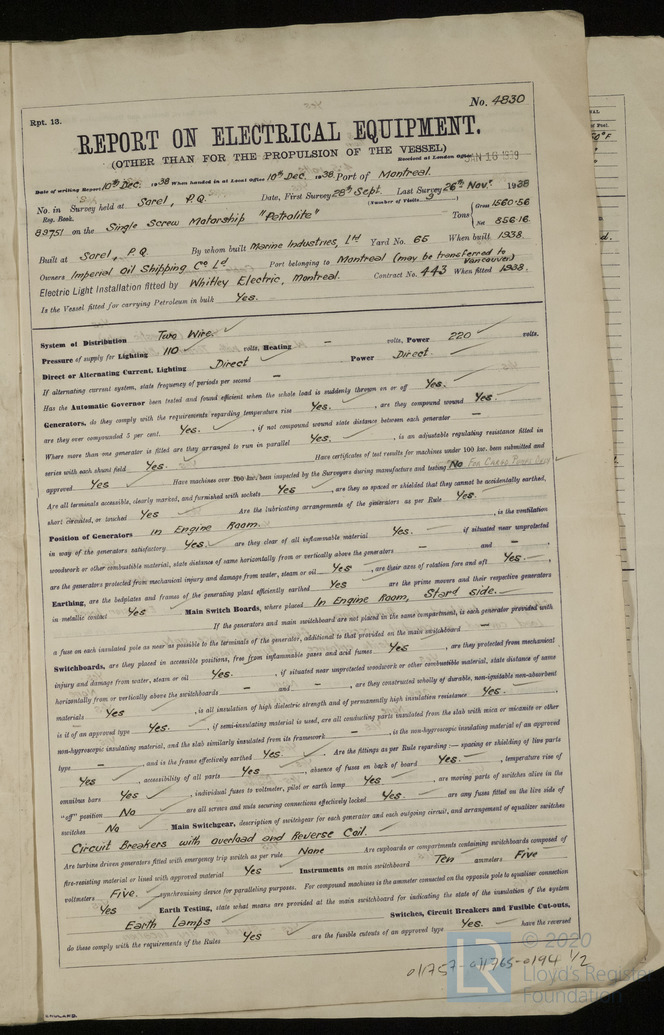 Rpt. 13.
No. 4830
REPORT ON ELECTRICAL EQUIPMENT.
(OTHER THAN FOR THE PROPULSION OF THE VESSEL)
Received at London Office JAN 16 1939
Date of writing Report 10th Dec. 1938 When handed in at Local Office 10th Dec. 1938. Port of Montreal.
No. in Survey held at Sorel, P.Q. Date, First Survey 28th Sept. Last Survey 26th Nov. 1938
Reg. Book. (Number of Visits 3)
89751 on the Single Screw Motorship "Petrolite" Tons { Gross 1560.56
Net 856.16
Built at Sorel, P.Q. By whom built Marine Industries, Ltd Yard No. 65 When built 1938.
Owners Imperial Oil Shipping Co Ld Port belonging to Montreal (may be transferred to Vancouver)
Electric Light Installation fitted by Whitley Electric, Montreal. Contract No. 443 When fitted 1938.
Is the Vessel fitted for carrying Petroleum in bulk Yes.
System of Distribution Two Wire.
Pressure of supply for Lighting 110 volts, Heating - volts, Power 220 volts.
Direct or Alternating Current, Lighting Direct Power Direct.
If alternating current system, state frequency of periods per second -
Has the Automatic Governor been tested and found efficient when the whole load is suddenly thrown on or off Yes.
Generators, do they comply with the requirements regarding temperature rise Yes. , are they compound wound Yes.
are they over compounded 5 per cent. Yes. , if not compound wound state distance between each generator -
Where more than one generator is fitted are they arranged to run in parallel Yes. , is an adjustable regulating resistance fitted in
series with each shunt field Yes. Have certificates of test results for machines under 100 kw. been submitted and
approved Yes Have machines over 100 kw. been inspected by the Surveyors during manufacture and testing No For Cargo Pumps Only
Are all terminals accessible, clearly marked, and furnished with sockets Yes , are they so spaced or shielded that they cannot be accidentally earthed,
short circuited, or touched Yes Are the lubricating arrangements of the generators as per Rule Yes.
Position of Generators in Engine Room. , is the ventilation
in way of the generators satisfactory Yes. are they clear of all inflammable material Yes. if situated near unprotected
woodwork or other combustible material, state distance of same horizontally from or vertically above the generators - and -
are the generators protected from mechanical injury and damage from water, steam or oil Yes , are their axes of rotation fore and aft Yes.
Earthing, are the bedplates and frames of the generating plant efficiently earthed Yes are the prime movers and their respective generators
in metallic contact Yes Main Switch Boards, where placed In Engine Room, Stard side.
If the generators and main switchboard are not placed in the same compartment, is each generator provided with
a fuse on each insulated pole as near as possible to the terminals of the generator, additional to that provided on the main switchboard -
Switchboards, are they placed in accessible positions, free from inflammable gases and acid fumes Yes , are they protected from mechanical
injury and damage from water, steam or oil Yes. , if situated near unprotected woodwork or other combustible material, state distance of same
horizontally from or vertically above the switchboards - and - , are they constructed wholly of durable, non-ignitable non-absorbent
materials Yes , is all insulation of high dielectric strength and of permanently high insulation resistance Yes.
is it of an approved type Yes. , if semi-insulating material is used, are all conducting parts insulated from the slab with mica or micanite or other
non-hygroscopic insulating material, and the slab similarly insulated from its framework - , is the non-hygroscopic insulating material of an approved
type - , and is the frame effectively earthed Yes. Are the fittings as per Rule regarding:— spacing or shielding of live parts
Yes , accessibility of all parts Yes , absence of fuses on back of board Yes. , temperature rise of
omnibus bars Yes , individual fuses to voltmeter, pilot or earth lamp Yes , are moving parts of switches alive in the
"off" position No are all screws and nuts securing connections effectively locked Yes. are any fuses fitted on the live side of
switches No Main Switchgear, description of switchgear for each generator and each outgoing circuit, and arrangement of equalizer switches
Circuit Breakers with overload and Reverse Coil.
Are turbine driven generators fitted with emergency trip switch as per rule None Are cupboards or compartments containing switchboards composed of
fire-resisting material or lined with approved material Yes Instruments on main switchboard Ten ammeters Five
voltmeters Five. synchronising device for paralleling purposes. For compound machines is the ammeter connected on the opposite pole to equaliser connection
Yes Earth Testing, state what means are provided at the main switchboard for indicating the state of the insulation of the system
Earth Lamps Switches, Circuit Breakers and Fusible Cut-outs,
do these comply with the requirements of the Rules Yes are the fusible cutouts of an approved type Yes. have the reversed
011757-011765-0194 1/2
LR
© 2020
Lloyd's Register
Foundation